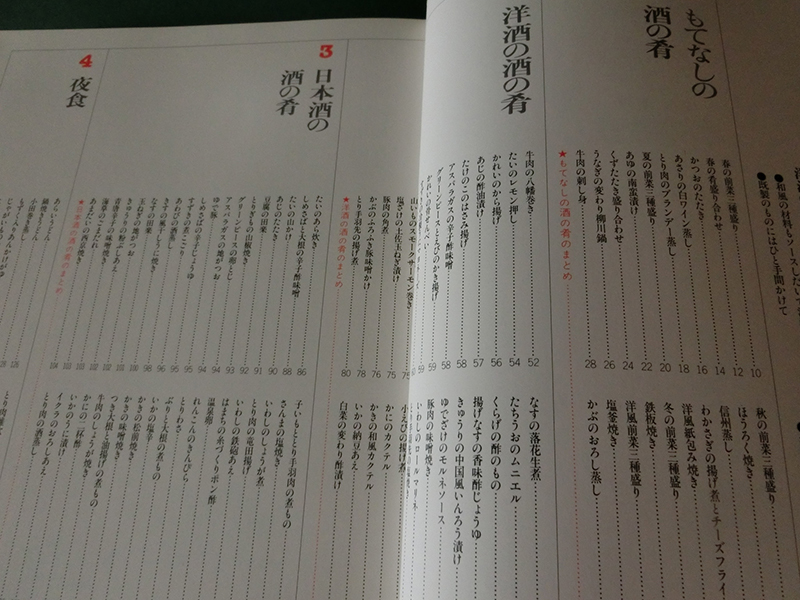 ●和風の材料もソースしだいで
●既製のものにはひと手間かけて
もてなしの
酒の肴
春の前菜三種盛り 10
春の肴盛り合わせ 12
かつおのたたき 14
あさりの白ワイン蒸し 16
とり肉のブランデー蒸し 18
夏の前菜三種盛り 20
あゆの南蛮漬け 22
くずたたき盛り合わせ 24
うなぎの変わり柳川鍋 26
牛肉の刺し身 28
★もてなしの酒の肴のまとめ
秋の前菜三種盛り
ほうろく焼き
信州蒸し
わかさぎの揚げ煮とチーズフライ
洋風紙包み焼き
冬の前菜三種盛り
鉄板焼き
洋風前菜三種盛り
塩釜焼き
かぶのおろし蒸し
洋酒の酒の肴
牛肉の八幡巻き 52
たいのレモン押し 54
かれいのから揚げ 56
あじの酢油漬け 57
たけのこのはさみ揚げ 58
アスパラガスの辛子酢味噌 58
グリーンピースとえびのかき揚げ 59
なすの落花生煮
たちうおのムニエル
くらげの酢のもの
揚げなすの香味酢じょうゆ
きゅうりの中国風いんろう漬け
ゆでざけのモルネソース
豚肉の味噌焼き
いわしのロールマリネ
山いものスモークサーモン巻き
塩ざけの土佐玉ねぎ漬け 75
豚肉の角煮 75
かぶのふろふき豚味噌かけ 76
とり手羽先の揚げ煮 78
★洋酒の酒の肴のまとめ 80
小えびの揚げ煮
かにのカクテル
かきの和風カクテル
いかの納豆あえ
白菜の変わり酢漬け
3
日本酒の
酒の肴
たいのあら炊き 86
しめさばと大根の辛子酢味噌 88
たいの山かけ 88
あじのたたき 90
豆腐の田楽 91
とりぎもの山椒焼き 91
グリーンピースの卵とじ 92
アスパラガスの地がつお 93
ゆで豚 94
しめさばの辛子じょうゆ 94
すずきの煮こごり 95
あわびの酒蒸し 95
さざえの風干しうに焼き 96
なすの田楽 98
玉ねぎの地がつお 100
きゅうりの粉ぶしあえ 100
青唐辛子の味噌焼き 102
蓮草のごまだれ 102
あまだいの西京焼き 102
★日本酒の酒の肴のまとめ 104
子いもととり手羽肉の煮もの
さんまの塩焼き
いわしのしょうが煮
とり肉の竜田揚げ
いわしの鉄砲あえ
はまちの糸づくりポン酢
温泉卵
れんこんのきんぴら
とりわさ
ぶりと大根の煮もの
いかの塩辛
かきの松前焼き
かきの味噌焼き
つき大根と油揚げの煮もの
牛肉のしょうが焼き
かにの二杯酢
いかのうに漬け
イクラのおろしあえ
とり肉の酒蒸し
4
夜食
あらいうどん
鍋焼きうどん
小田巻き蒸し